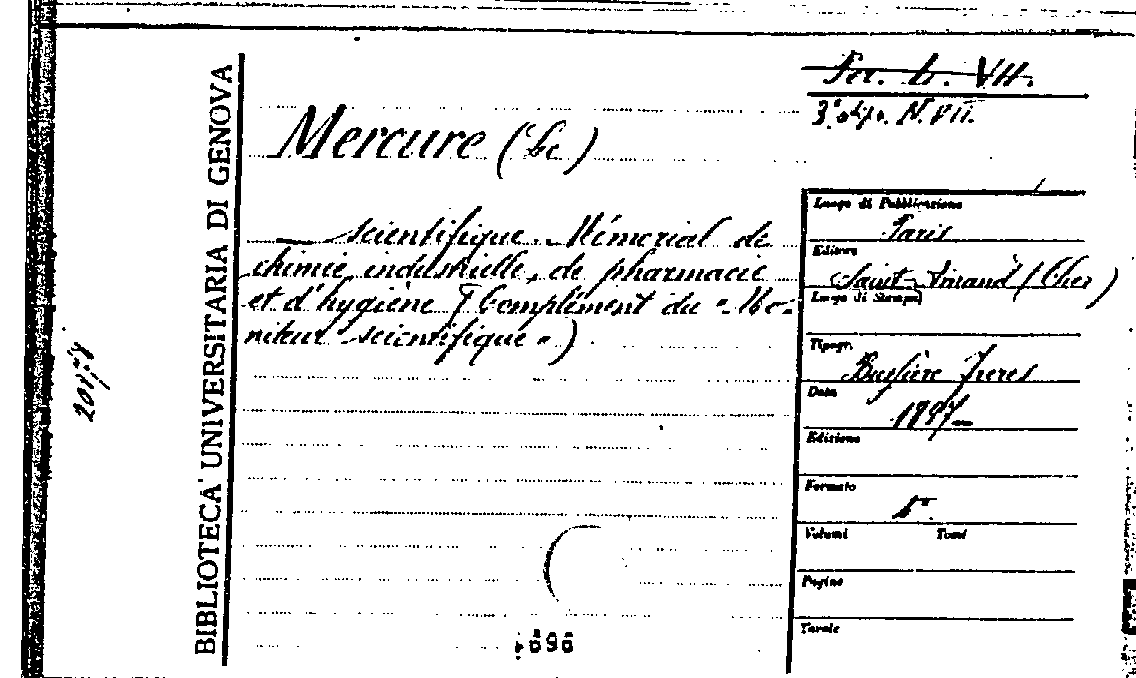 BIBLIOTECA UNIVERSITARIA DI GENOVA
Mercure (Le)
— scientifique. Mémorial de
chimie industrielle, de pharmacie
et d'hygiène (Complément du "Mo-
niteur scientifique")
VII.
N. VII.
Luogo di Pubblicazione
Paris
Editore
Saint-Amand (Cher)
Luogo di Stampa
Tipogr.
Bussière Frères
Data
Edizione
Formato
8°
Volumi Tomi
Pagine
Tavole